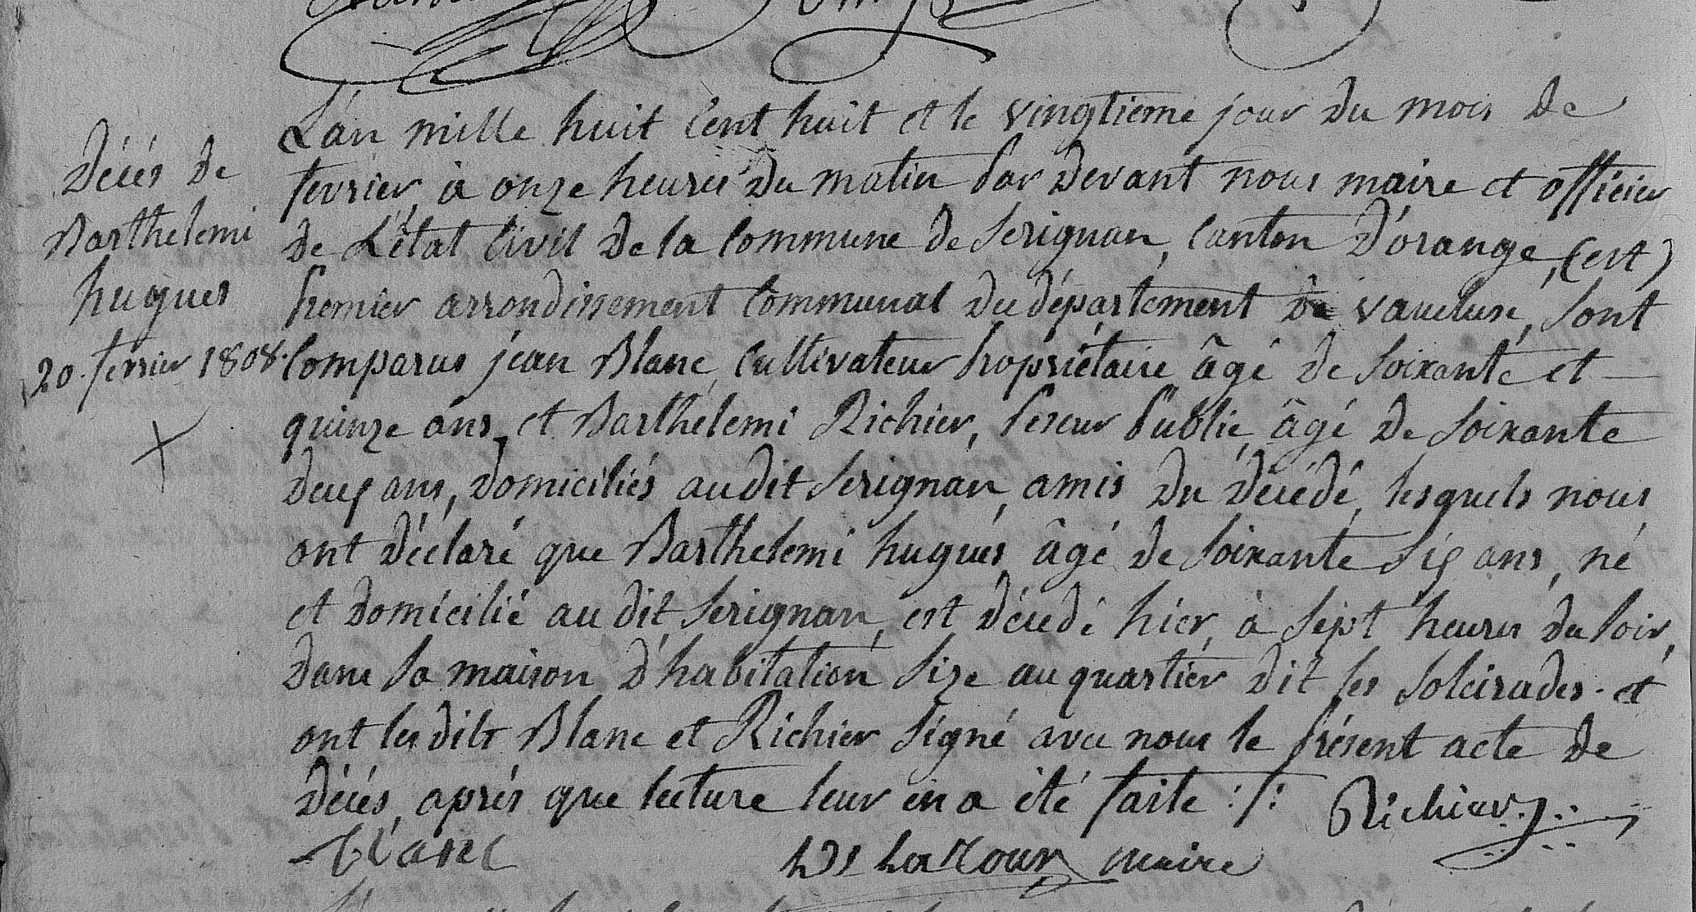 Décés de
Barthelemi
hugues
20. fevrier 1808.
L'an mille huit Cent huit et le vingtieme jour du mois de
fevrier, à onze heures du matin Par devant nous maire et officier
de L'état Civil de la Commune de Serignan, Canton d'orange, (est)
Premier arrondissement Communal du département de vaucluse, Sont
Comparus jean Blanc, Cultivateur Propriétaire âgé de Soixante et
quinze ans, et Barthélemi Richier, Peseur Public, âgé de Soixante
deux ans, domiciliés au dit Sérignan, amis du décédé, lesquels nous
ont déclaré que Barthelemi hugues, âgé de Soixante Six ans, né
et domicilié au dit Serignan, est décedé hier, à Sept heures du Soir,
dans Sa maison d'habitation Size au quartier dit les Soleirades. et
ont les dits Blanc et Richier Signé avec nous le Présent acte de
Décés, aprés que lecture leur en a été faite :/:
Richier
Blanc
maire